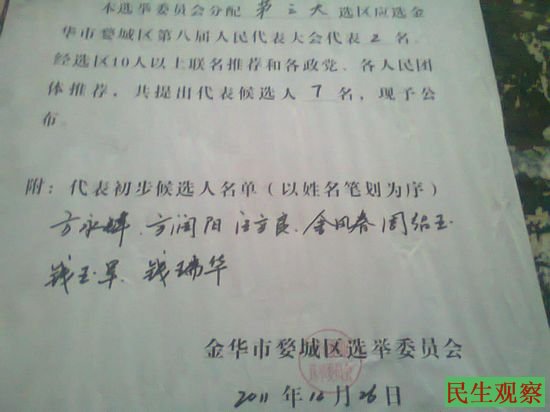 本选举委员会分配 第三大 选区应选金
华市婺城区第八届人民代表大会代表 2 名。
经选区10人以上联名推荐和各政党、各人民团
体推荐，共提出代表候选人 7 名，现予公
布。
附：代表初步候选人名单（以姓名笔划为序）
方永峰、方润阳 汪方良、金凤春 周绍玉
钱玉军、钱瑞华
金华市婺城区选举委员会
2011 年 12 月 26 日
民生观察